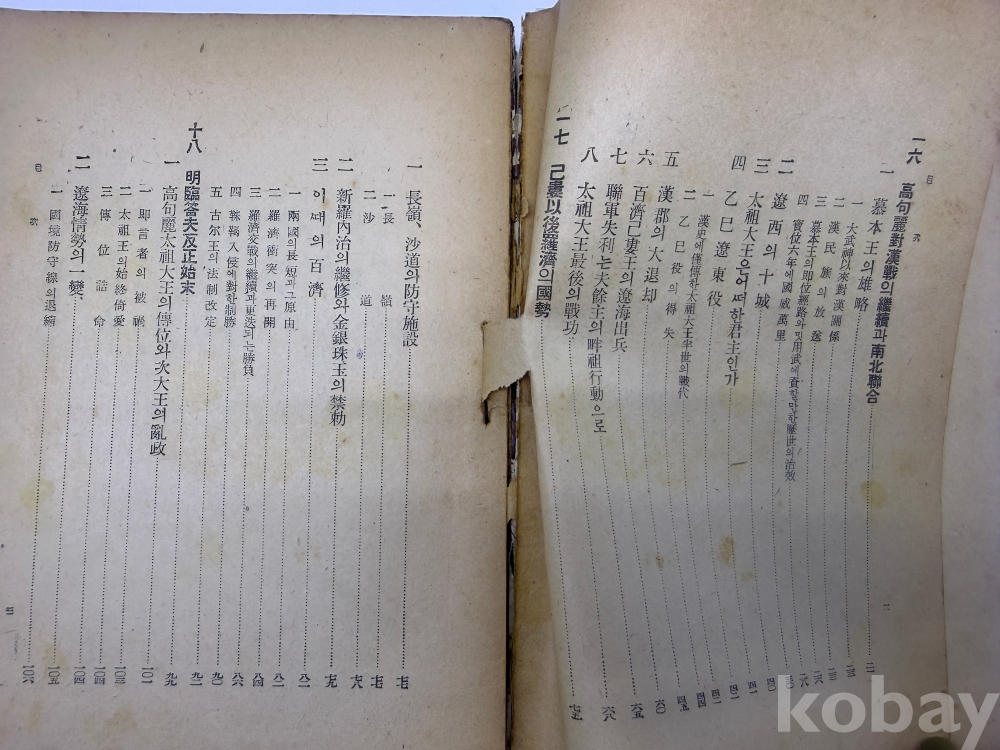 目 次
一六 高句麗對漢戰의 繼續과 南北聯合
一 慕本王의 雄略
一 大武神以來對漢關係
二 漢民族의 放逸
三 慕本王의 即位經路와 밋用武에 資할만한歷世의治效
四 寶位六年에 國威萬里
二 遼西의 十城
三 太祖大王은어떠한君主인가
四 乙巳遼東役
一 漢史에 僅傳한 太祖大王半世의戰代
二 乙巳役의 得失
五 漢郡의 大退却
六 百濟己婁王의 遼海出兵
七 聯軍失利는夫餘主의畔祖行動으로
八 太祖大王最後의戰功
一七 己婁以後羅濟의國勢
一 長嶺、沙道의防守施設
一 長嶺
二 沙道
二 新羅內治의繼修와金銀珠玉의禁勅
三 이때의百濟
一 兩國의長短과그原由
二 羅濟衝突의再開
三 羅濟交戰의繼續과更迭되는勝負
四 靺鞨入侵에對한制勝
五 古尔王의法制改定
十八 明臨答夫反正始末
一 高句麗太祖大王의傳位와次大王의亂政
一 即言者의被禍
二 太祖王의始終倚愛
三 傳位誥命
二 遼海情勢의一變
一 國境防守線의退縮
目 次
kobay